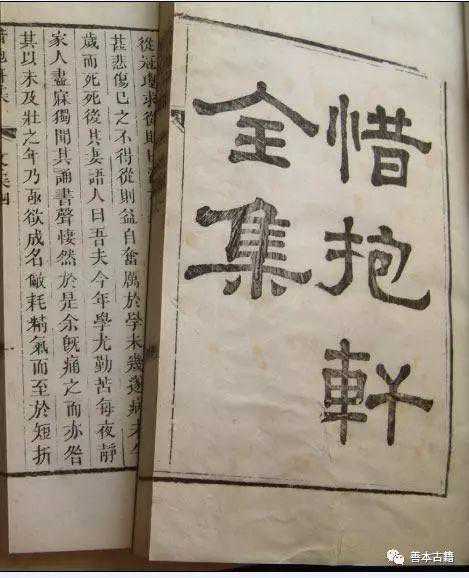 惜抱軒
全集
甚悲傷已之不得從則益自奮厲於學未幾遂病
歲而死死後其妻語人曰吾夫今年學尤勤苦每夜靜
家人盡寐獨聞其誦書聲悽然於是余旣痛之而亦咎
其以未及壯之年乃亟欲成名敝耗精氣而至於短折
文集四
善本古籍